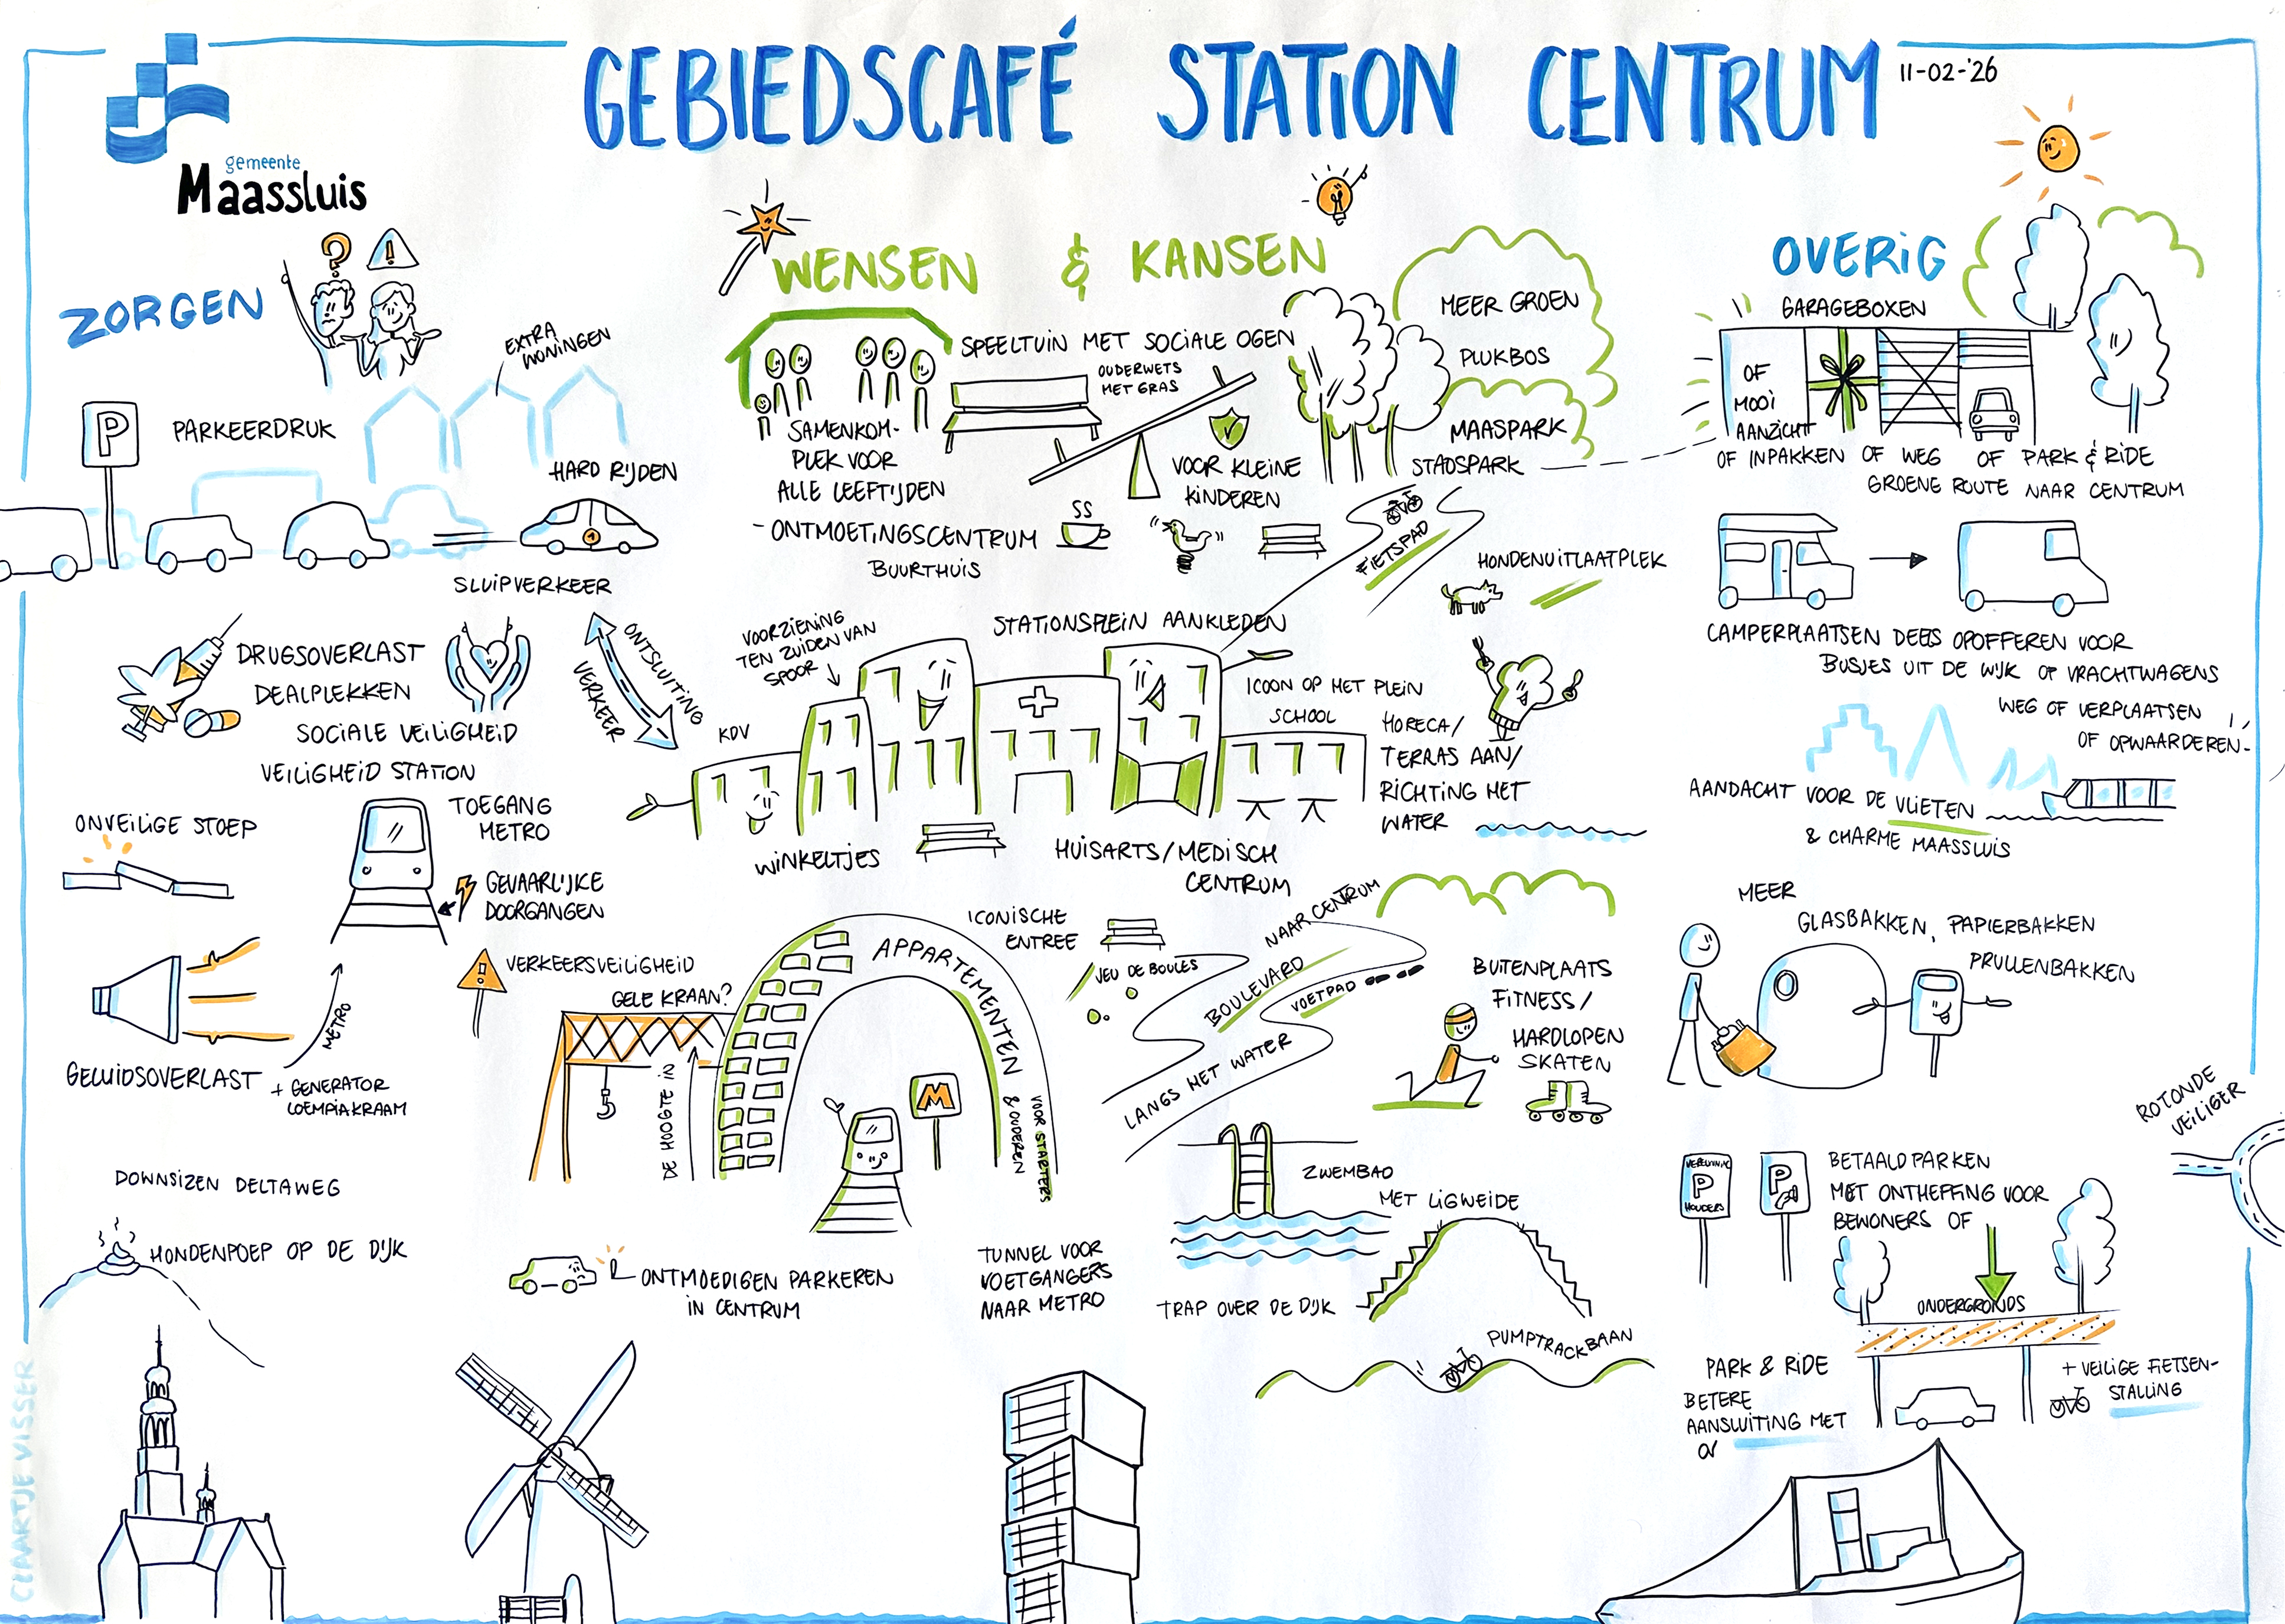 GEBIEDSCAFÉ STATION CENTRUM
11-02-'26
gemeente
Maassluis
ZORGEN
EXTRA
WONINGEN
P
PARKEERDRUK
HARD RIJDEN
SLUIPVERKEER
DRUGSOVERLAST
DEALPLEKKEN
SOCIALE VEILIGHEID
VEILIGHEID STATION
ONTSLUITING
VERKEER
ONVEILIGE STOEP
TOEGANG
METRO
GEVAARLIJKE
DOORGANGEN
VERKEERSVEILIGHEID
METRO
GELUIDSOVERLAST
+ GENERATOR
LOEMPIAKRAAM
DOWNSIZEN DELTAWEG
HONDENPOEP OP DE DIJK
WENSEN & KANSEN
SPEELTUIN MET SOCIALE OGEN
OUDERWETS
MET GRAS
SAMENKOM-
PLEK VOOR
ALLE LEEFTIJDEN
VOOR KLEINE
KINDEREN
- ONTMOETINGSCENTRUM
BUURTHUIS
MEER GROEN
PLUKBOS
MAASPARK
STADSPARK
FIETSPAD
HONDENUITLAATPLEK
VOORZIENING
TEN ZUIDEN VAN
SPOOR
STATIONSPLEIN AANKLEDEN
ICOON OP HET PLEIN
KDV
SCHOOL
HORECA/
TERRAS AAN/
RICHTING HET
WATER
WINKELTJES
HUISARTS/MEDISCH
CENTRUM
ICONISCHE
ENTREE
APPARTEMENTEN
VOOR STARTERS
& OUDEREN
GELE KRAAN?
DE HOOGTE IN
M
JEU DE BOULES
NAAR CENTRUM
BOULEVARD
VOETPAD
LANGS HET WATER
BUITENPLAATS
FITNESS/
HARDLOPEN
SKATEN
ZWEMBAD
MET LIGWEIDE
ONTMOEDIGEN PARKEREN
IN CENTRUM
TUNNEL VOOR
VOETGANGERS
NAAR METRO
TRAP OVER DE DIJK
PUMPTRACKBAAN
OVERIG
GARAGEBOXEN
OF
MOOI
AANZICHT
OF INPAKKEN OF WEG OF PARK & RIDE
GROENE ROUTE NAAR CENTRUM
CAMPERPLAATSEN DEELS OPOFFEREN VOOR
BUSJES UIT DE WIJK OF VRACHTWAGENS
WEG OF VERPLAATSEN
OF OPWAARDEREN
AANDACHT VOOR DE VLIETEN
& CHARME MAASSLUIS
MEER
GLASBAKKEN, PAPIERBAKKEN
PRULLENBAKKEN
ROTONDE
VEILIGER
P
HOUDERS
P
BETAALD PARKEN
MET ONTHEFFING VOOR
BEWONERS OF
ONDERGRONDS
PARK & RIDE
BETERE
AANSLUITING MET
OV
+ VEILIGE FIETSEN-
STALLING
CLAARTJE VISSER